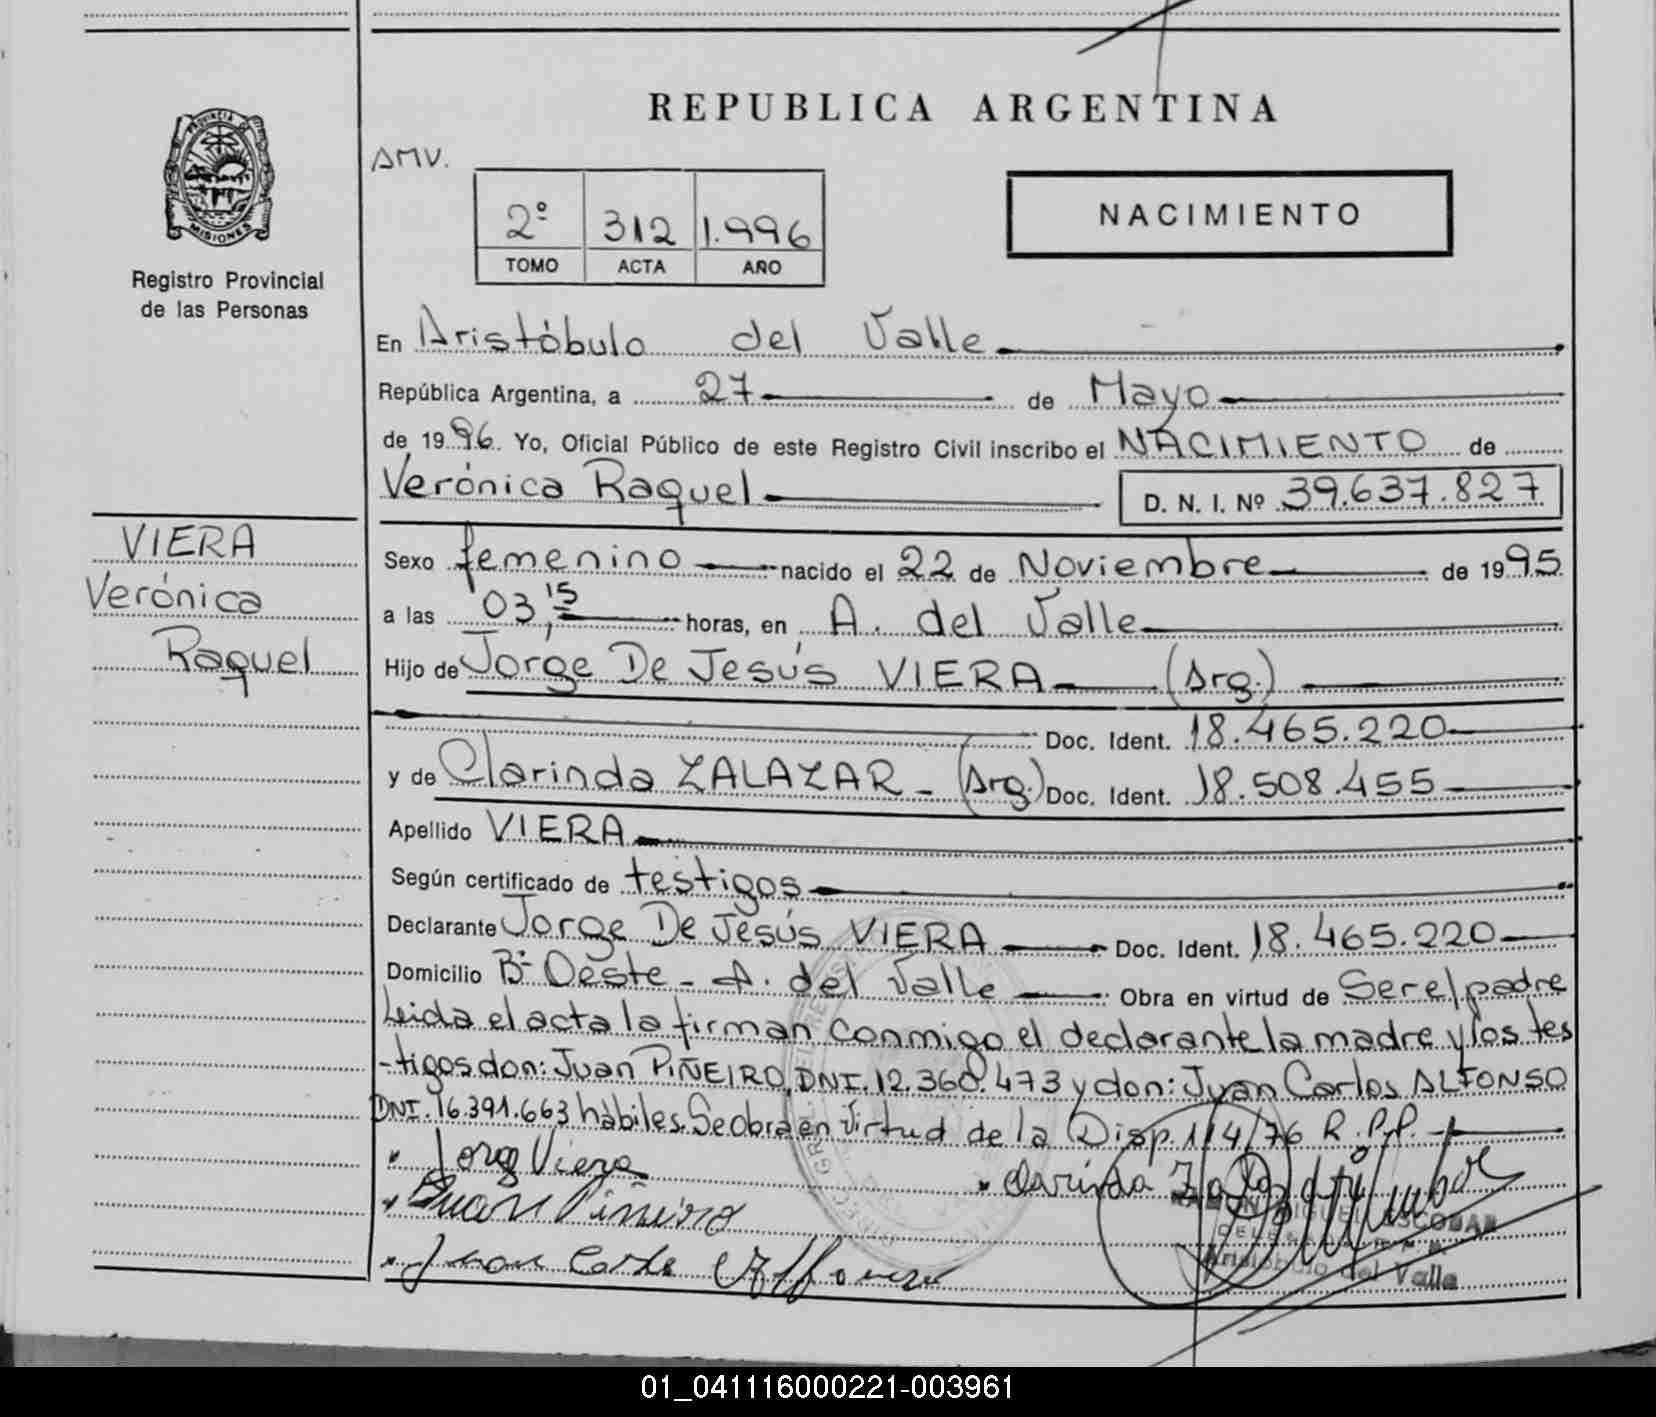 REPUBLICA ARGENTINA
PROVINCIA DE
MISIONES
Registro Provincial
de las Personas
AMV.
2º 312 1.996
TOMO ACTA AÑO
NACIMIENTO
En Aristóbulo del Valle
República Argentina, a 27 de Mayo
de 1996. Yo, Oficial Público de este Registro Civil inscribo el NACIMIENTO de
Verónica Raquel D. N. I. Nº 39.637.827
VIERA
Verónica
Raquel
Sexo femenino nacido el 22 de Noviembre de 1995
a las 03,15 horas, en A. del Valle
Hijo de Jorge De Jesús VIERA (Arg.)
Doc. Ident. 18.465.220
y de Clarinda ZALAZAR - (Arg.) Doc. Ident. 18.508.455
Apellido VIERA
Según certificado de testigos
Declarante Jorge De Jesús VIERA Doc. Ident. 18.465.220
Domicilio Bº Oeste - A. del Valle Obra en virtud de Ser el padre
Leida el acta la firman conmigo el declarante la madre y los tes
-tigos don: Juan PIÑEIRO, DNI. 12.360.473 y don: Juan Carlos ALFONSO
DNI. 16.391.663 hábiles. Se obra en virtud de la Disp. 114/76 R.P.P.
Jorge Viera
Clarinda Zalazar
Juan Piñeiro
MIGUEL ESCOBAR
Aristóbulo del Valle
Juan Carlos Alfonso
01_041116000221-003961